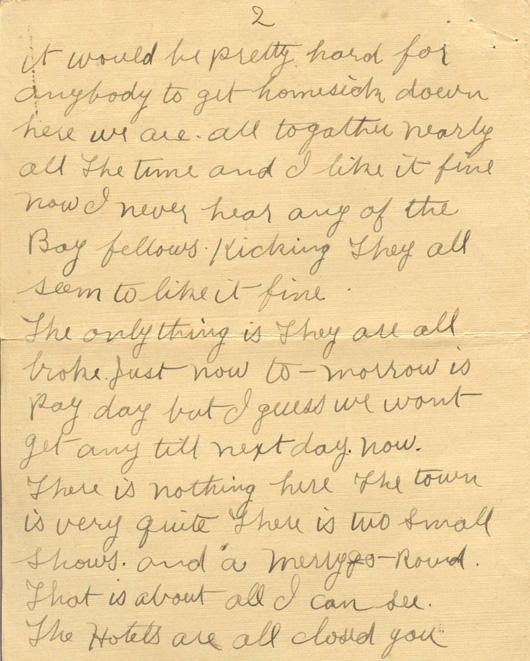 2
it would be pretty hard for
anybody to get homesick down
here we are. all togather nearly
all The time and I like it fine
now I never hear any of the
Bay fellows. Kicking They all
seem to like it fine.
The only thing is They are all
broke. Just now to-morrow is
Pay day but I guess we wont
get any till next day. now.
There is nothing here The town
is very quite There is two small
Shows. and a merry go-Round.
That is about all I can see.
The Hotels are all closed you